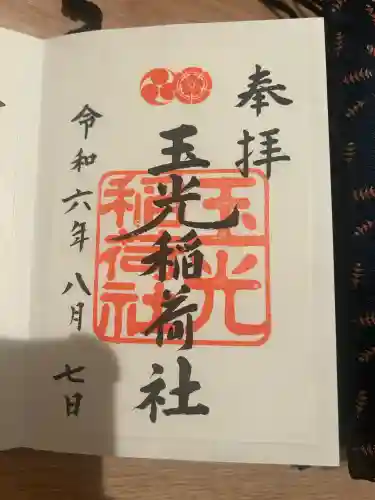 奉拝
玉光稲荷社
玉光
稲荷社
令和六年八月七日